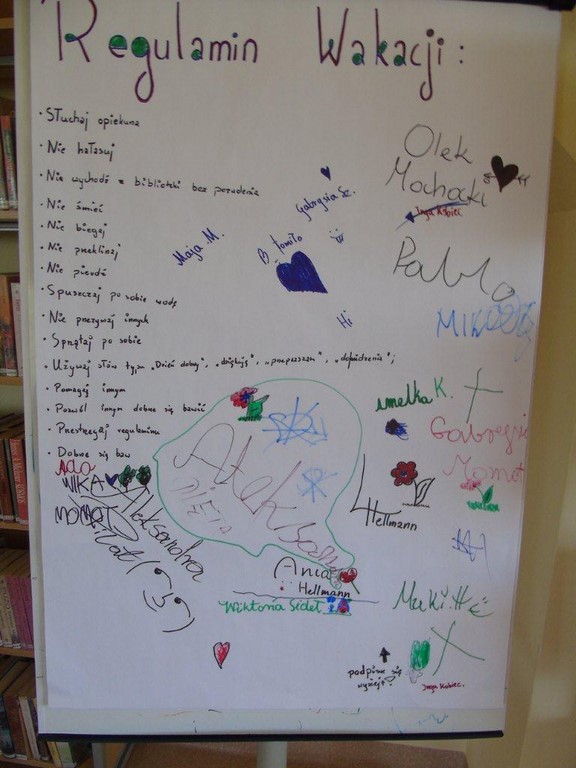 Regulamin Wakacji:
• Słuchaj opiekuna
• Nie hałasuj
• Nie wychodź z biblioteki bez pozwolenia
• Nie śmieć
• Nie biegaj
• Nie przeklinaj
• Nie pierdź
• Spuszczaj po sobie wodę
• Nie przezywaj innych
• Sprzątaj po sobie
• Używaj słów typu „Dzień dobry", „dziękuję", „przepraszam", „dowidzenia";
• Pomagaj innym
• Pozwól innym dobrze się bawić
• Przestrzegaj regulaminu
• Dobrze się baw
Olek
Mochocki
Inga Kobiec
Gabrysia Sz.
Maja M.
B. fomiło
Pablo
Hi
MIKOŁAJ
amelka K.
Gabrysia
Momot
Ada
WIKA
MOMOT
Aleksandra
Aleks
L Hellmann
Ania
Hellmann
Wiktoria Sidel
podpisz się
wyżej?
Inga Kobiec.